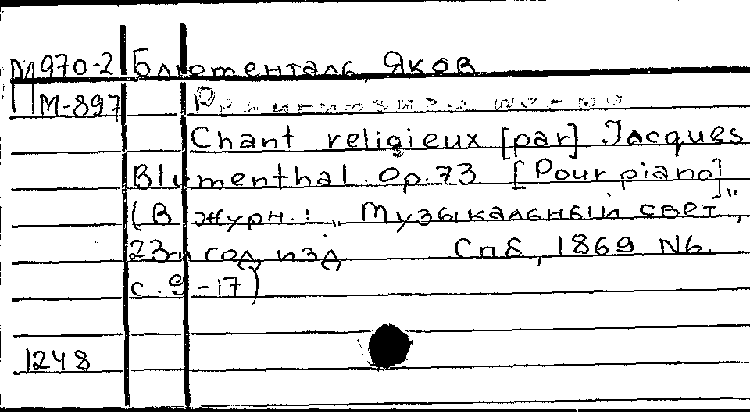 М970-2 Блюменталь, Яков
М-897
Chant religieux [par] Jacques
Blumenthal. Op. 73 [Pour piano]
(В журн.: „Музыкальный свет",
23-й год изд. Спб, 1869 N6.
с. 9-17)
1248